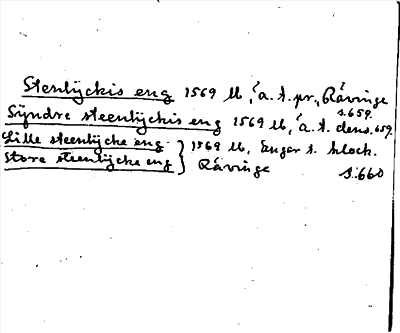 Stenlyckis eng 1569 Ll, a. t. pr., Rävinge
s. 659.
Syndre steenlyckis eng 1569 Ll, a. t. dens. 659.
Lille steenlycke eng } 1569 Ll, Engar t. klock.
Store steenlycke eng } Rävinge s. 660